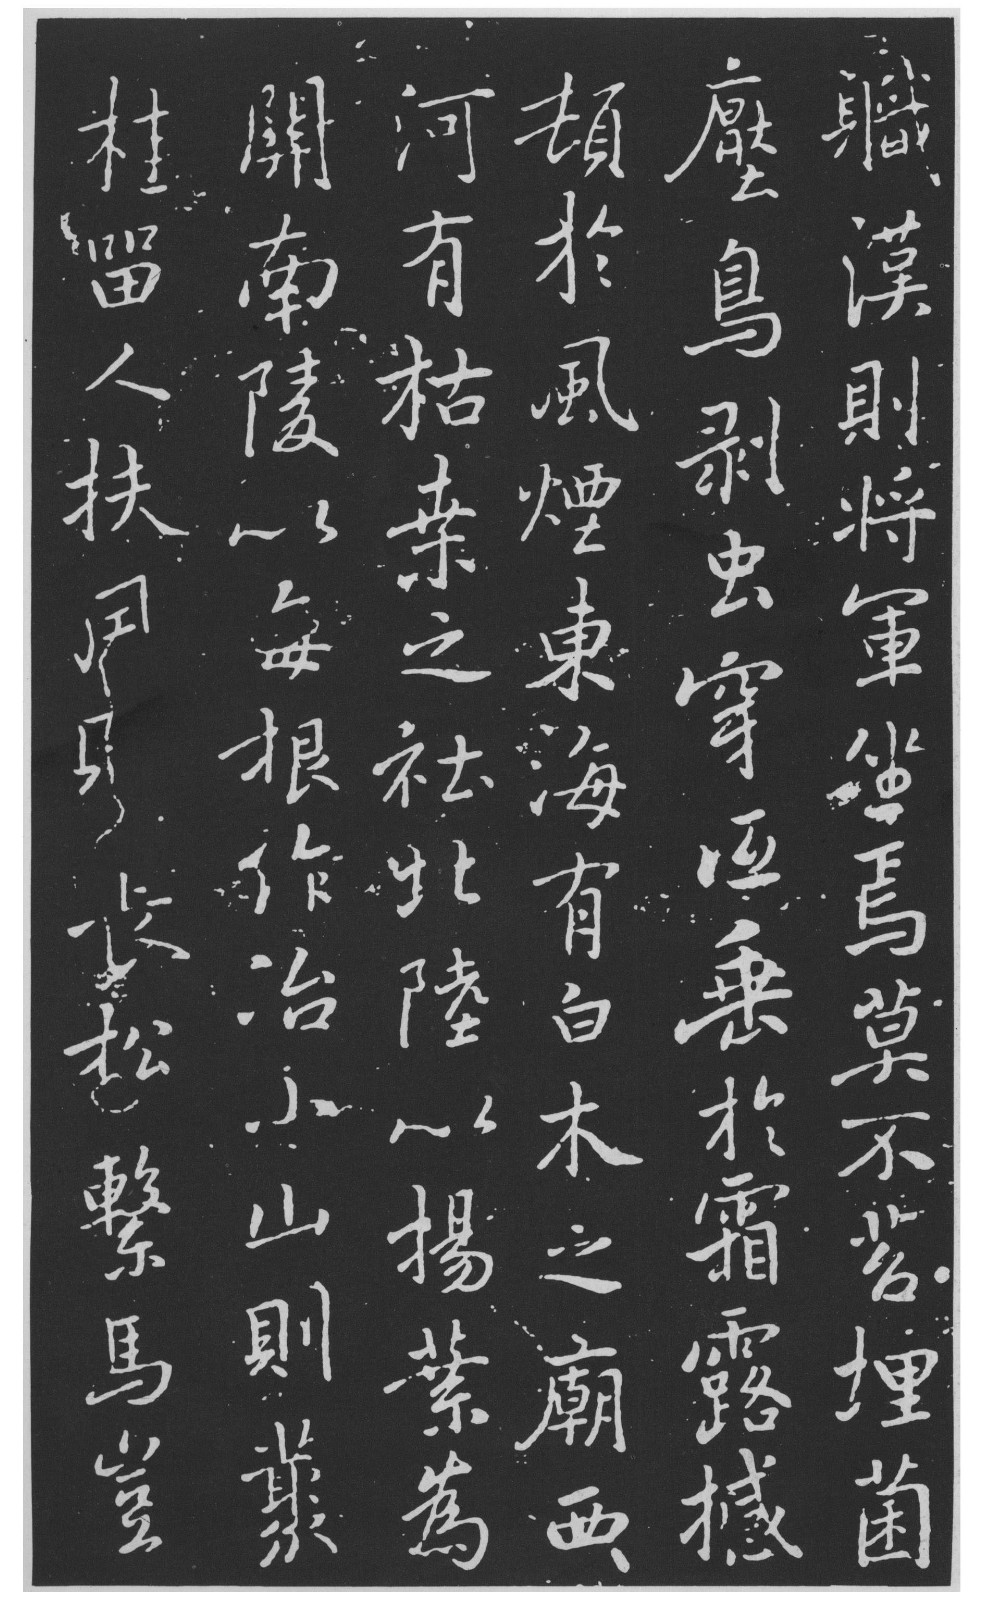 職漢則将軍坐焉莫不苔埋菌
壓鳥剥虫穿低垂於霜露撼
頓於風煙東海有白木之廟西
河有枯桑之社北陸以揚葉為
關南陵以每根作冶小山則叢
桂留人扶風則長松繫馬豈